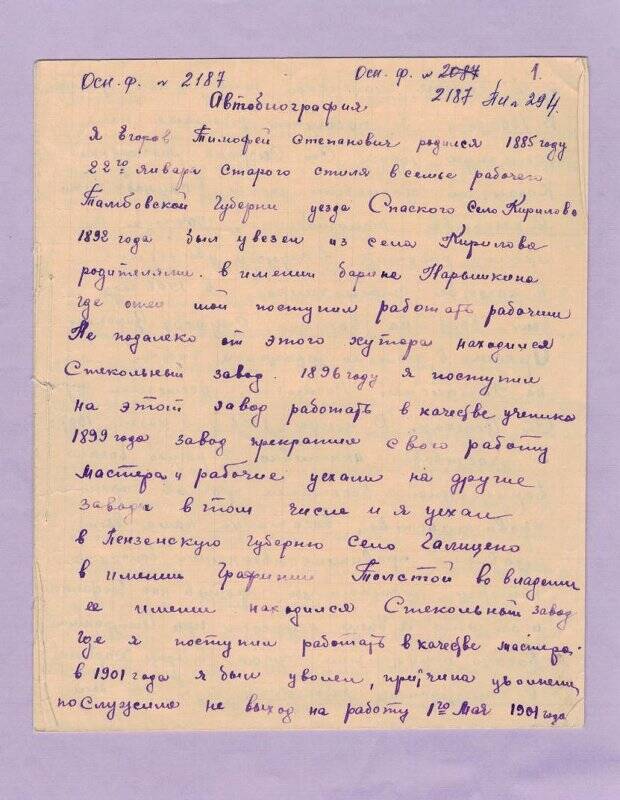 Осн. ф. № 2187
Осн. ф. № 2087 1.
2187 Пи № 294.
Автобиография
Я Егоров Тимофей Степанович родился 1885 году
22го января старого стиля в семье рабочего
Тамбовской Губерни уезда Спаского Село Кирилово
1892 года был увезен из села Кирилова
родителями. в имении барина Нарышкина
где отец мой поступил работать рабочим
Не подалеко от этого хутора находился
Стекольный завод. 1896 году я поступил
на этот завод работать в качестве ученика
1899 года завод прекратил свого работу
мастера и рабочие уехали на другие
завода в том числе и я уехал
в Пензенскую губерню Село Галицено
в имении Графини Толстой во владении
ее имении находился Стекольный завод
где я поступил работать в качестве мастера.
в 1901 года я был уволен, причина уволнении
послужило не выход на работу 1го Мая 1901 года